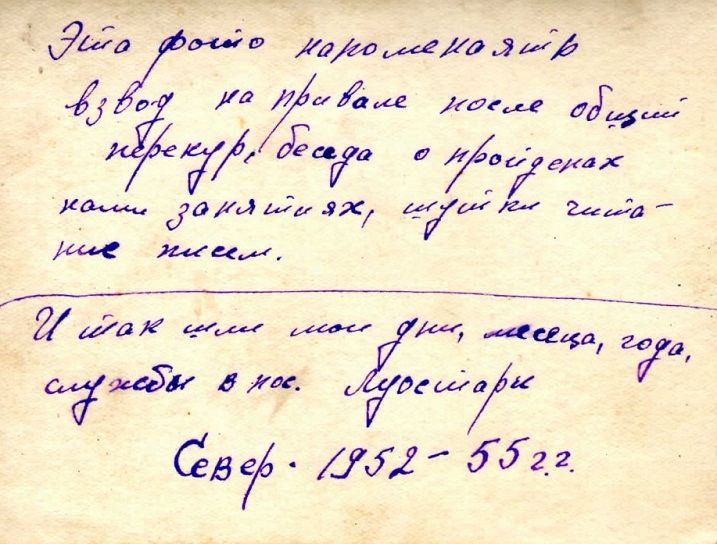 Эта фото напоменаять
взвод на привале после общий
перекур, беседа о пройденах
нами занятиях, шутки чита-
ние писем.
И так шли мои дни, месеца, года,
службы в пос. Луостари
Север. 1952-55 г.г.